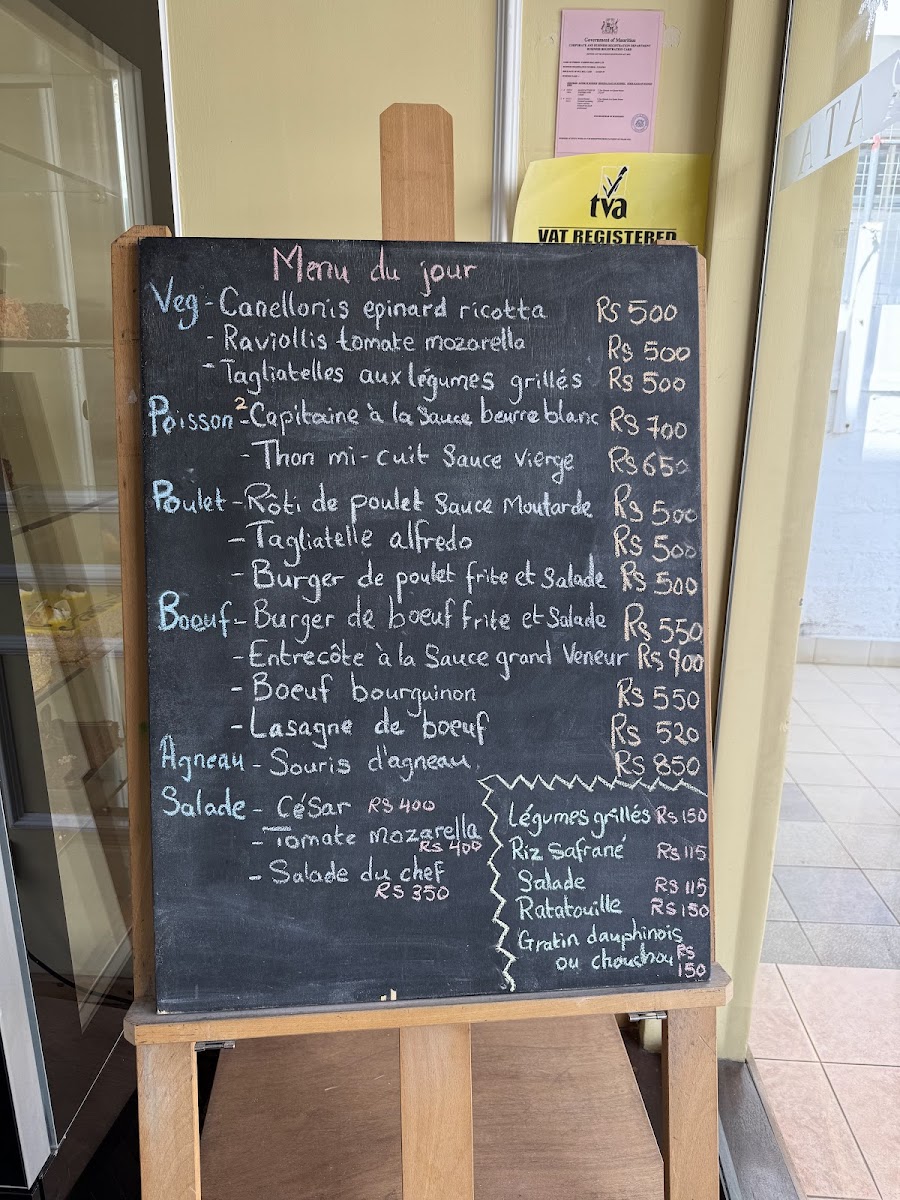 Government of Mauritius
CORPORATE AND BUSINESS REGISTRATION DEPARTMENT
BUSINESS REGISTRATION CARD
tva
VAT REGISTERED
ATA
Menu du jour
Veg - Canellonis epinard ricotta Rs 500
- Raviollis tomate mozorella Rs 500
- Tagliatelles aux légumes grillés Rs 500
Poisson 2 - Capitaine à la Sauce beurre blanc Rs 700
- Thon mi-cuit Sauce Vierge Rs 650
Poulet - Rôti de poulet Sauce Moutarde Rs 500
- Tagliatelle alfredo Rs 500
- Burger de poulet frite et Salade Rs 500
Boeuf - Burger de boeuf frite et Salade Rs 550
- Entrecôte à la Sauce grand Veneur Rs 900
- Boeuf bourguinon Rs 550
- Lasagne de boeuf Rs 520
Agneau - Souris d'agneau Rs 850
Salade - CéSar RS 400
- Tomate Mozarella Rs 400
- Salade du chef RS 350
Légumes grillés Rs 150
Riz Safrané Rs 115
Salade Rs 115
Ratatouille Rs 150
Gratin dauphinois
ou chouchou Rs 150